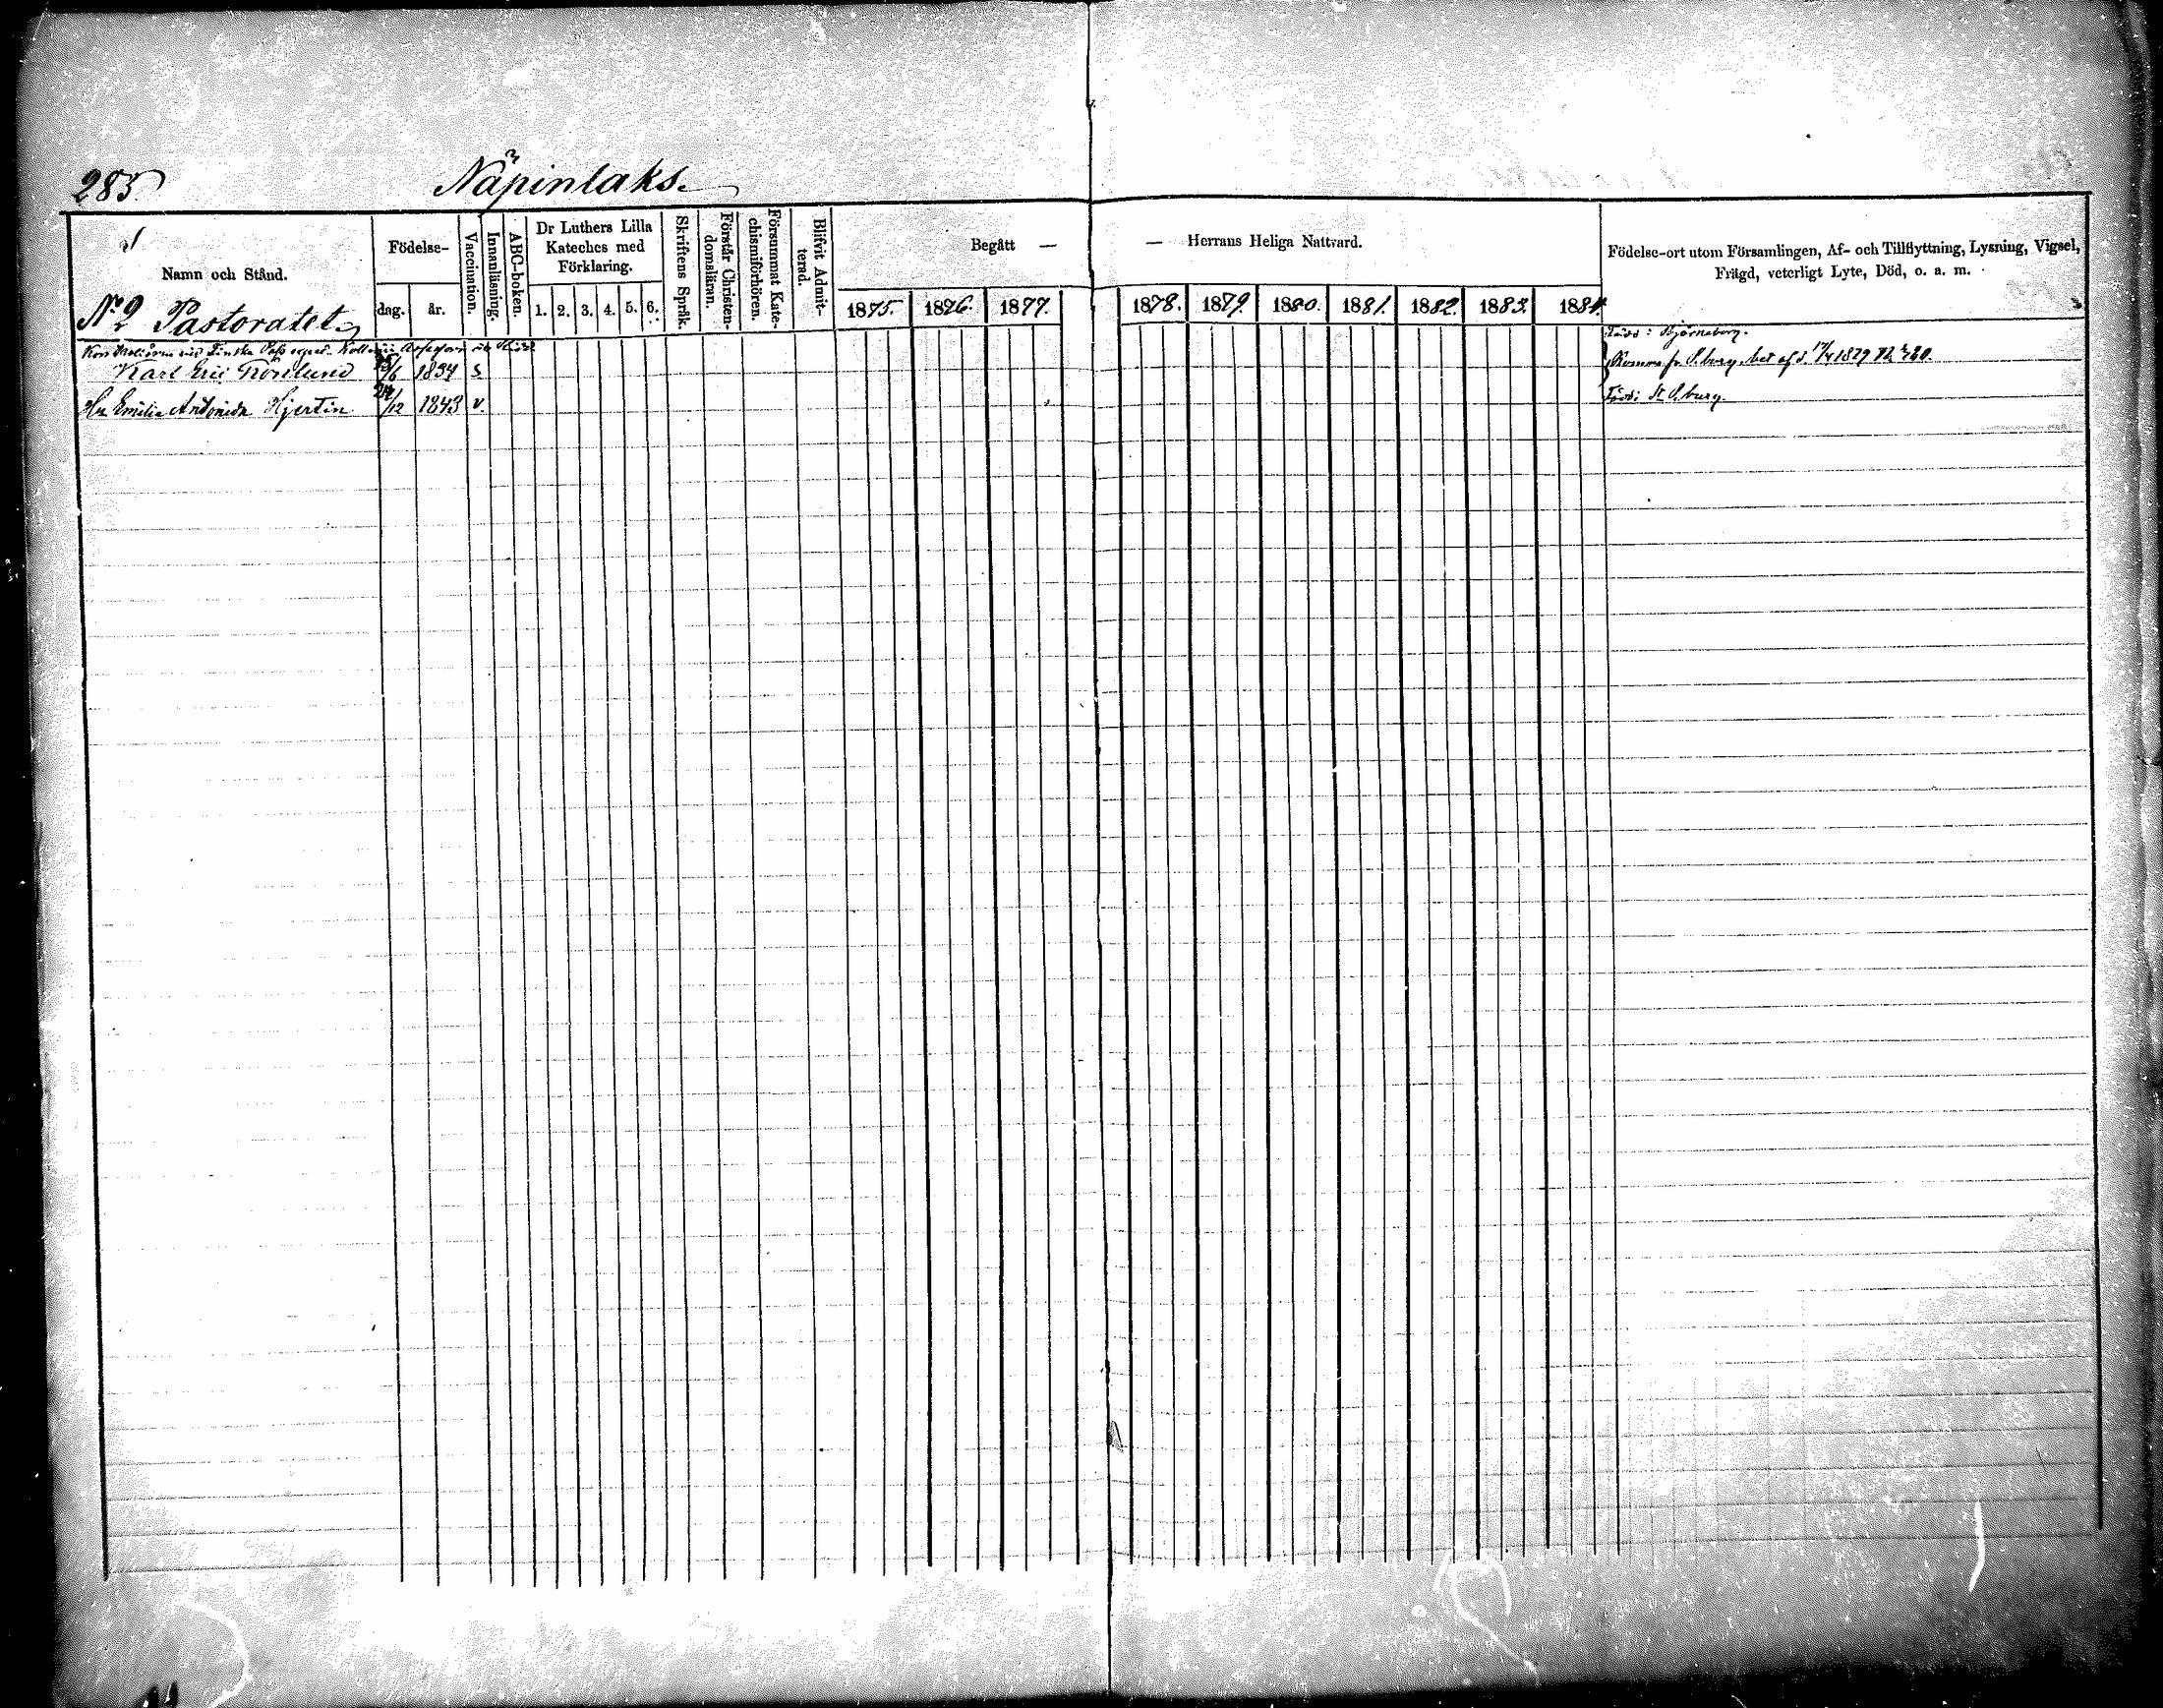 285.
Näpinlaks.
Namn och Stånd.
Födelse-
dag.
år.
Vaccination.
Innanläsning.
ABC-boken.
Dr Luthers Lilla
Kateches med
Förklaring.
1. 2. 3. 4. 5. 6.
Skriftens Språk.
Förstår Christen-
domsläran.
Försummat Kate-
chismiförhören.
Blifvit Admit-
terad.
Begått —
— Herrans Heliga Nattvard.
1875. 1876. 1877. 1878. 1879. 1880. 1881. 1882. 1883. 1884.
Födelse-ort utom Församlingen, Af- och Tillflyttning, Lysning, Vigsel,
Frägd, veterligt Lyte, Död, o. a. m.
No 2 Pastoratet
Finska Pass
Född: Björneborg.
Karl Eric 1834 s.
fr. P.burg, bet af d. 17/4 1879
Hu Emilia Antonieta Hjertin 24/12 1843 v.
Född: St P.burg.